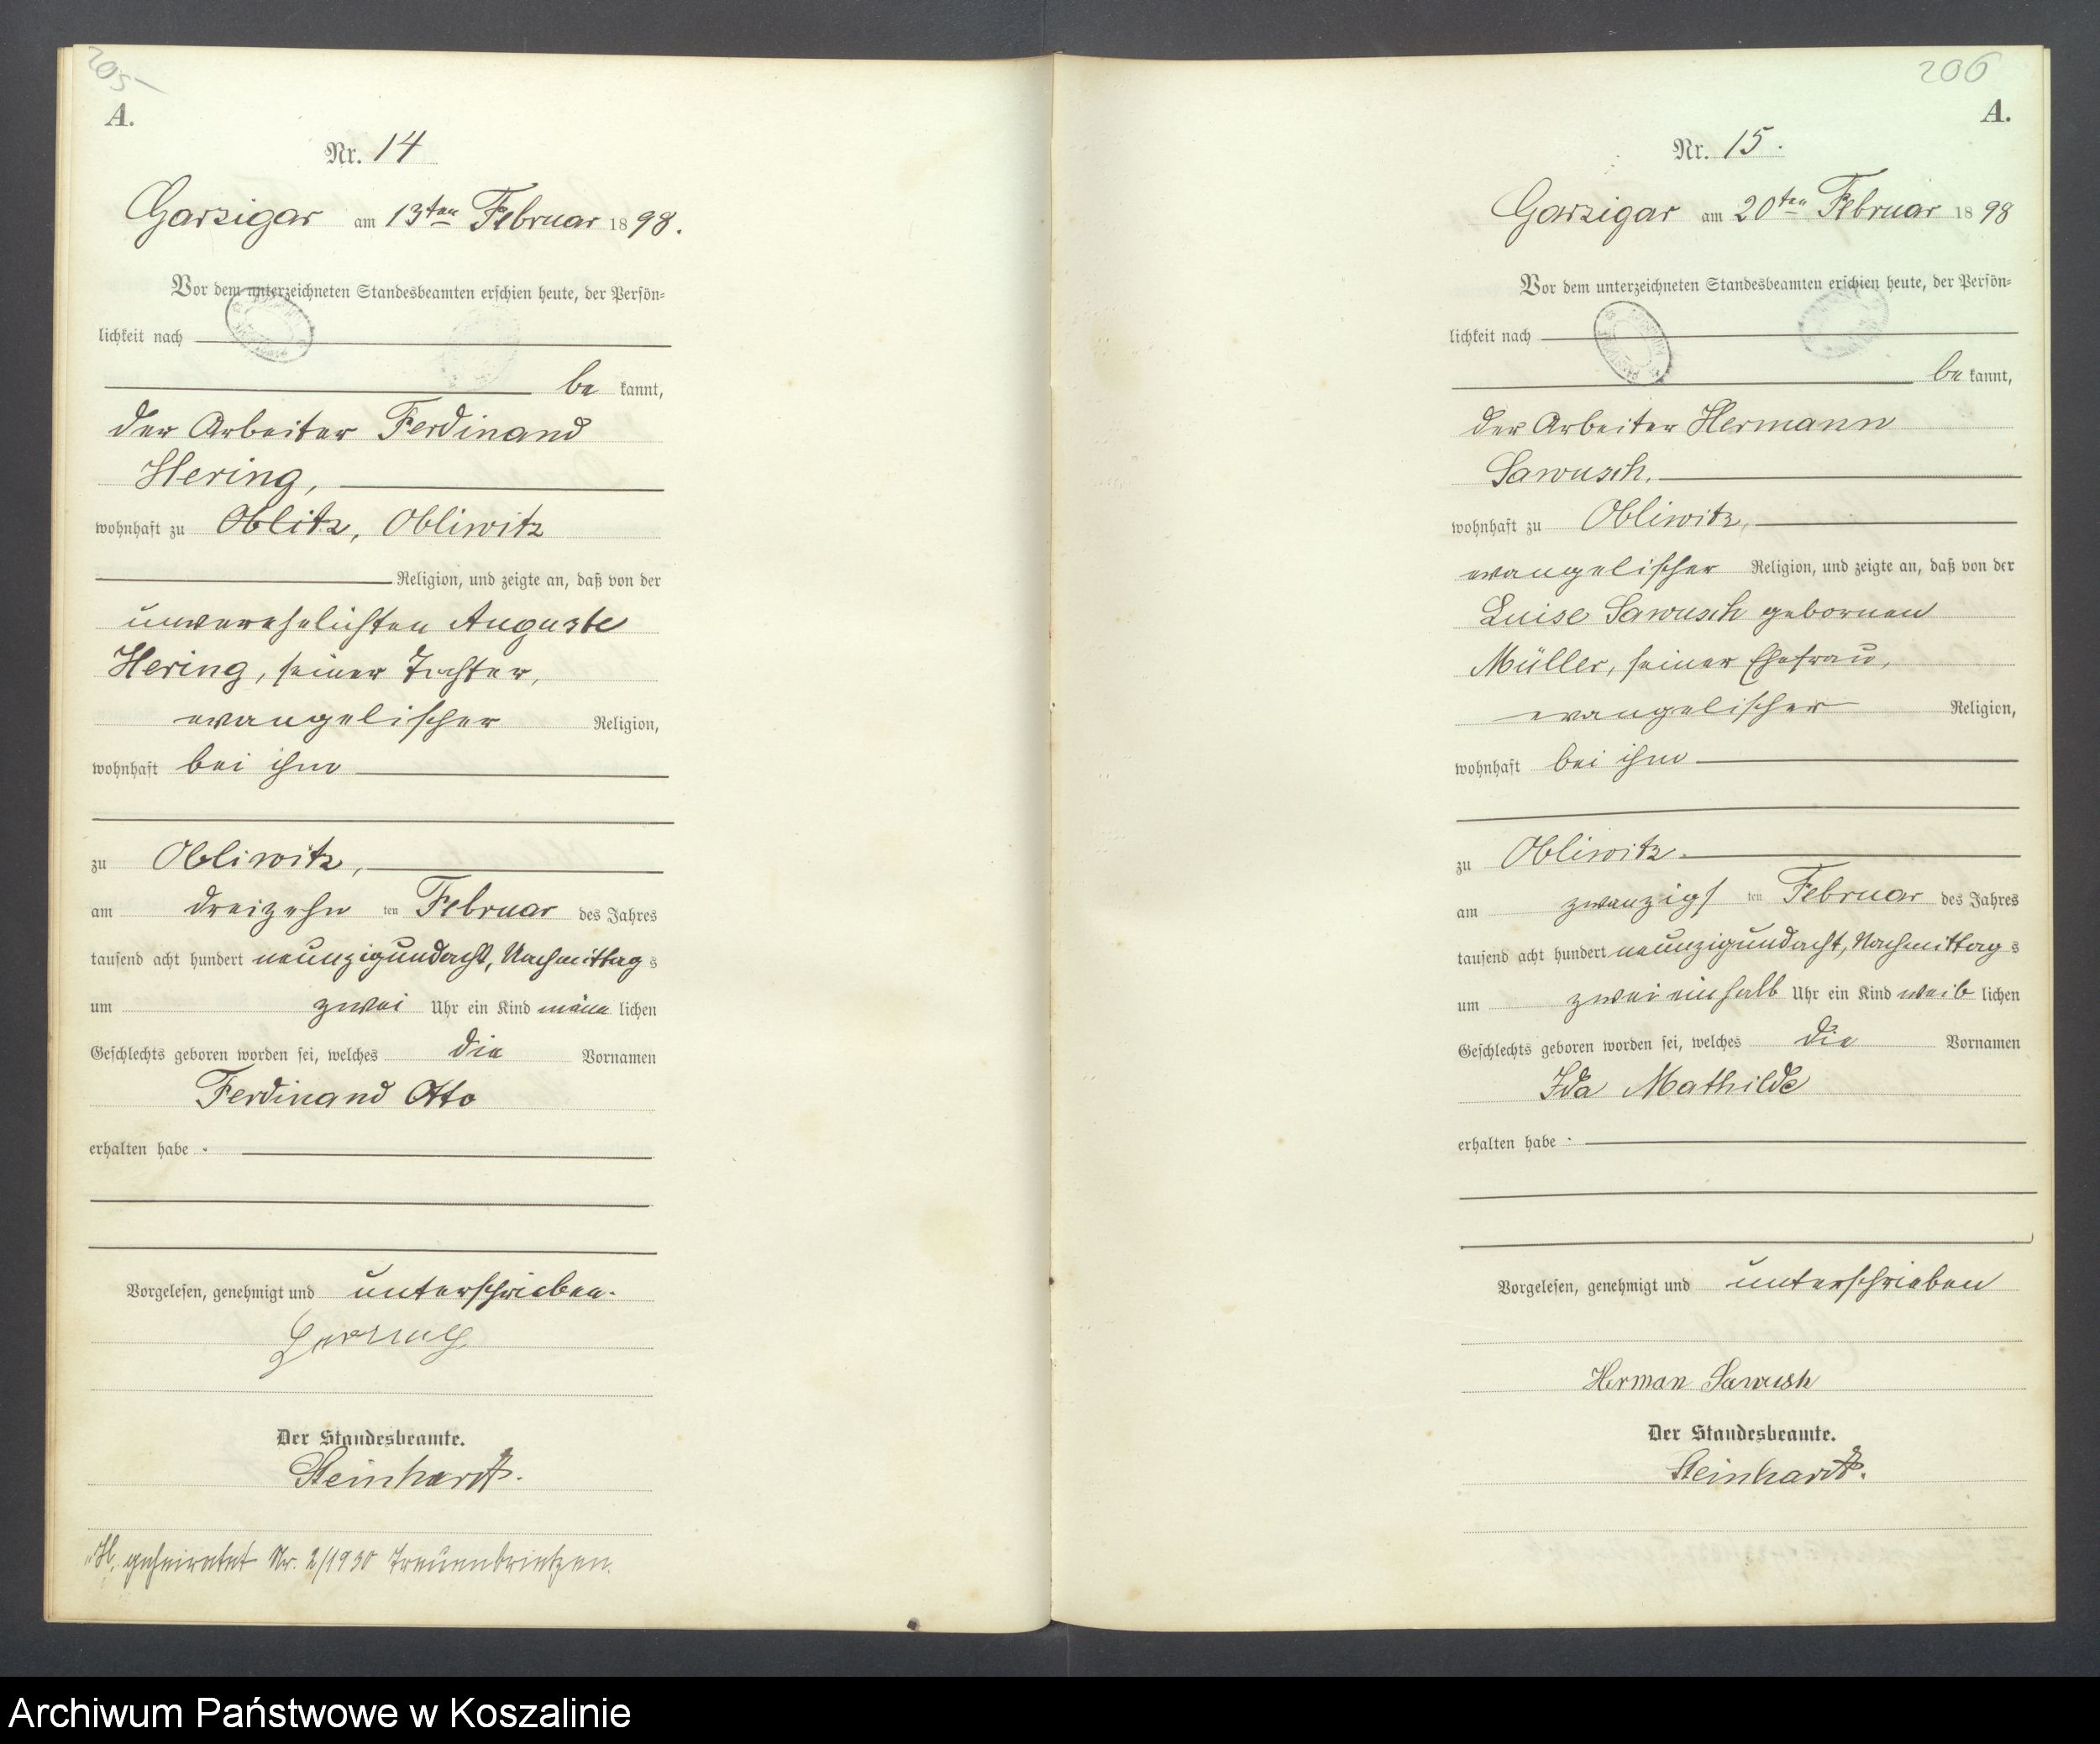 205
A.
Nr. 14
Garzigar am 13ten Februar 1898.
Vor dem unterzeichneten Standesbeamten erschien heute, der Persön-
lichkeit nach
be kannt,
der Arbeiter Ferdinand
Hering,
wohnhaft zu Oblitz, Obliwitz
Religion, und zeigte an, daß von der
unverehelichten Auguste
Hering, seiner Tochter,
evangelischer Religion,
wohnhaft bei ihm
zu Obliwitz,
am dreizehn ten Februar des Jahres
tausend acht hundert neunzigundacht, Nachmittag s
um zwei Uhr ein Kind männ lichen
Geschlechts geboren worden sei, welches die Vornamen
Ferdinand Otto
erhalten habe.
Vorgelesen, genehmigt und unterschrieben.
Der Standesbeamte.
Steinhardt.
H. geheiratet Nr. 2/1930 Treuenbrietzen.
206
A.
Nr. 15.
Garzigar am 20ten Februar 1898
Vor dem unterzeichneten Standesbeamten erschien heute, der Persön-
lichkeit nach
be kannt,
der Arbeiter Hermann
Sawusch.
wohnhaft zu Obliwitz,
evangelischer Religion, und zeigte an, daß von der
Luise Sawusch gebornen
Müller, seiner Ehefrau,
evangelischer Religion,
wohnhaft bei ihm
zu Obliwitz.
am zwanzigs ten Februar des Jahres
tausend acht hundert neunzigundacht, Nachmittag s
um zwei einhalb Uhr ein Kind weib lichen
Geschlechts geboren worden sei, welches die Vornamen
Ida Mathilde
erhalten habe.
Vorgelesen, genehmigt und unterschrieben
Herman Sawush
Der Standesbeamte.
Steinhardt.
Archiwum Państwowe w Koszalinie